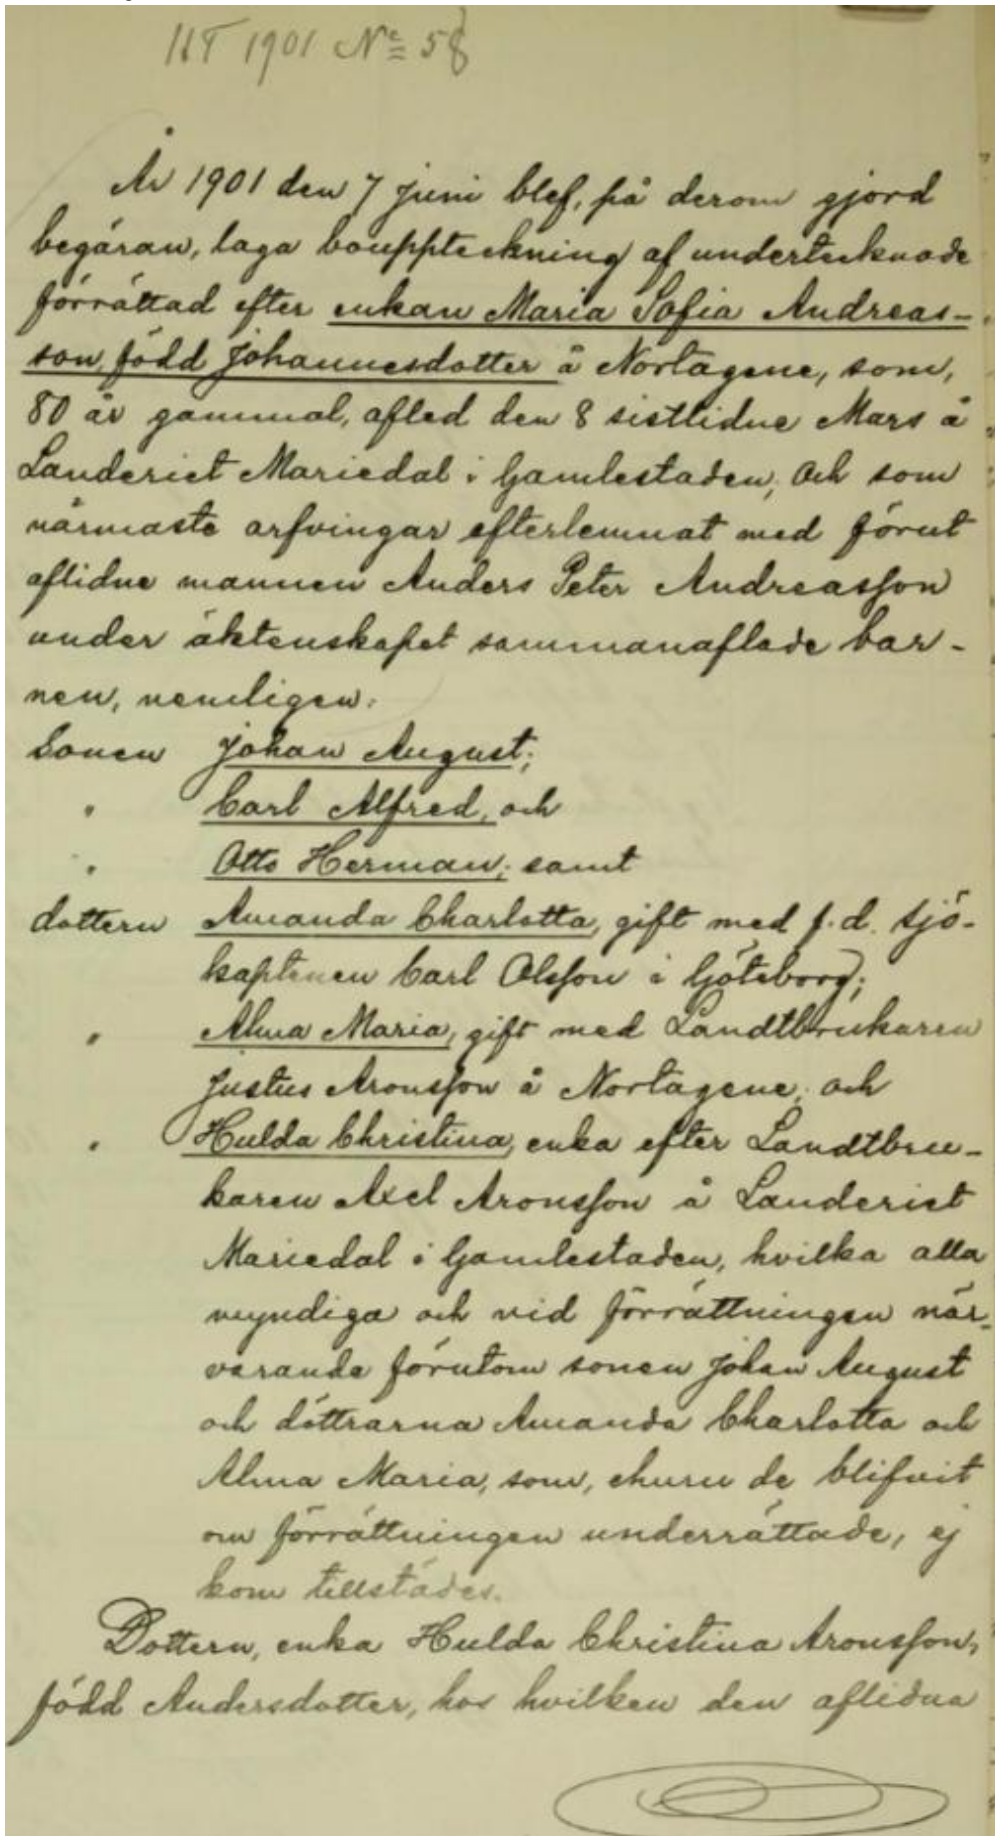 HT 1901 No 58
År 1901 den 7 Juni blef, på derom gjord
begäran, laga bouppteckning af undertecknade
förrättad efter enkan Maria Sofia Andreas-
son, född Johannesdotter å Nortagene, som,
80 år gammal, afled den 8 sistlidne Mars å
Landeriet Mariedal i Gamlestaden, och som
närmaste arfvingar efterlemnat med förut
aflidne mannen Anders Peter Andreasson
under äktenskapet sammanaflade bar-
nen, nemligen:
Sonen Johan August;
" Carl Alfred, och
" Otto Herman; samt
dottern Amanda Charlotta, gift med f.d. sjö-
kaptenen Carl Olsson i Göteborg;
" Alma Maria, gift med Landtbrukaren
Justus Aronsson å Nortagene, och
" Hulda Christina, enka efter Landtbru-
karen Axel Aronsson å Landeriet
Mariedal i Gamlestaden, hvilka alla
myndiga och vid förrättningen när-
varande förutom sonen Johan August
och döttrarna Amanda Charlotta och
Alma Maria, som, ehuru de blifvit
om förrättningen underrättade, ej
kom tillstädes.
Dottern, enka Hulda Christina Aronsson,
född Andersdotter, hos hvilken den aflidna